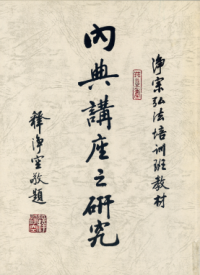 淨宗弘法培訓班教材
內典講座之研究
釋淨空敬題